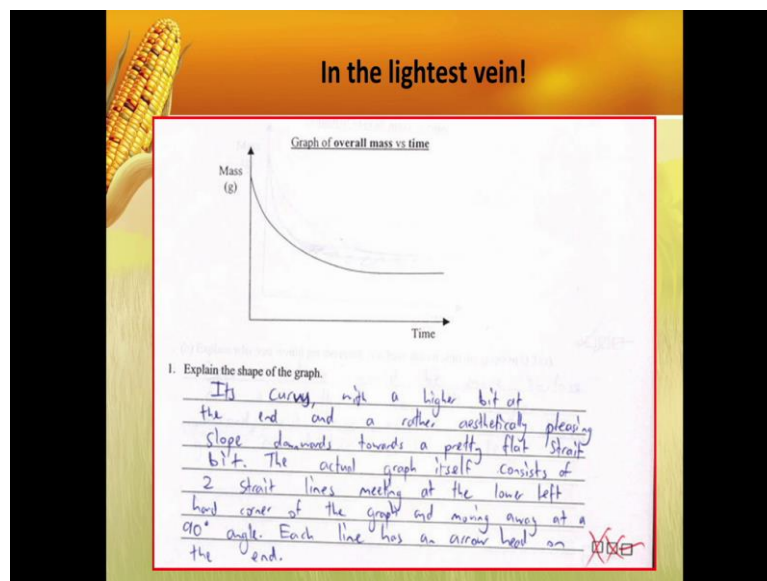 In the lightest vein!
Graph of overall mass vs time
Mass
(g)
Time
1. Explain the shape of the graph.
Its curvy, with a higher bit at
the end and a rather aesthetically pleasing
slope downwards towards a pretty flat strait
bit. The actual graph itself consists of
2 strait lines meeting at the lower left
hand corner of the graph and moving away at a
90° angle. Each line has an arrow head on
the end.